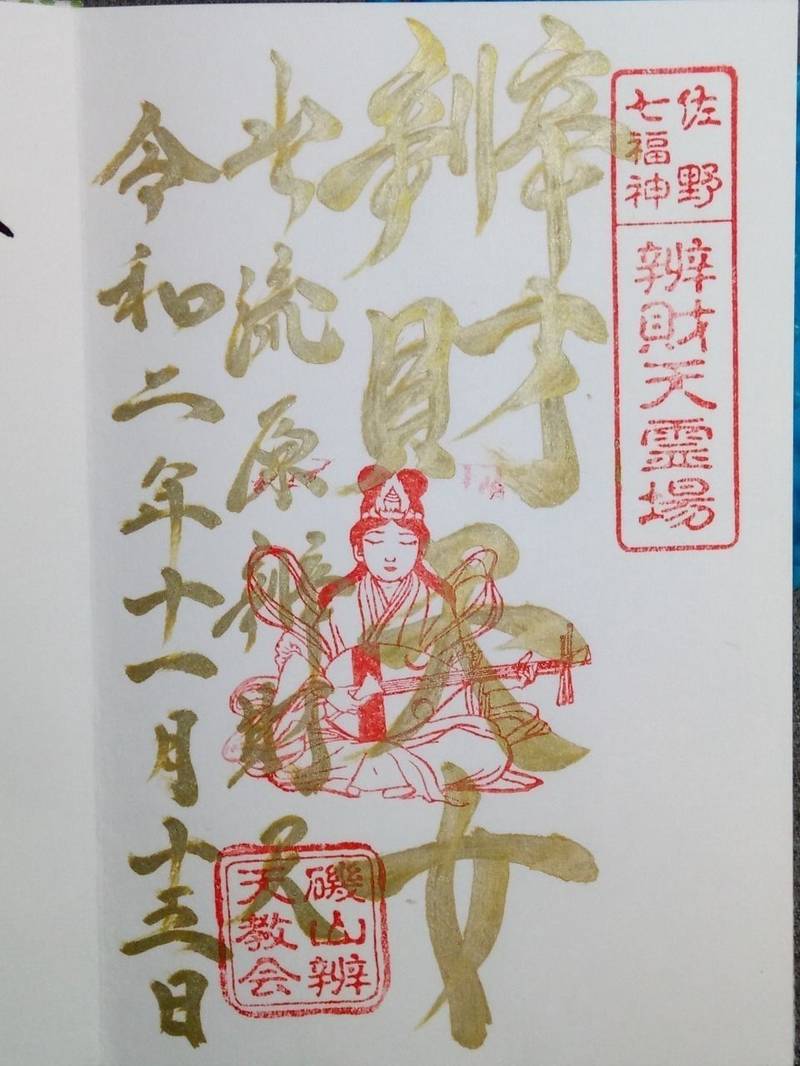 佐野
七福神
辨財天霊場
辨財天女
出流原辨財天
磯山辨
天教会
令和二年十一月十三日